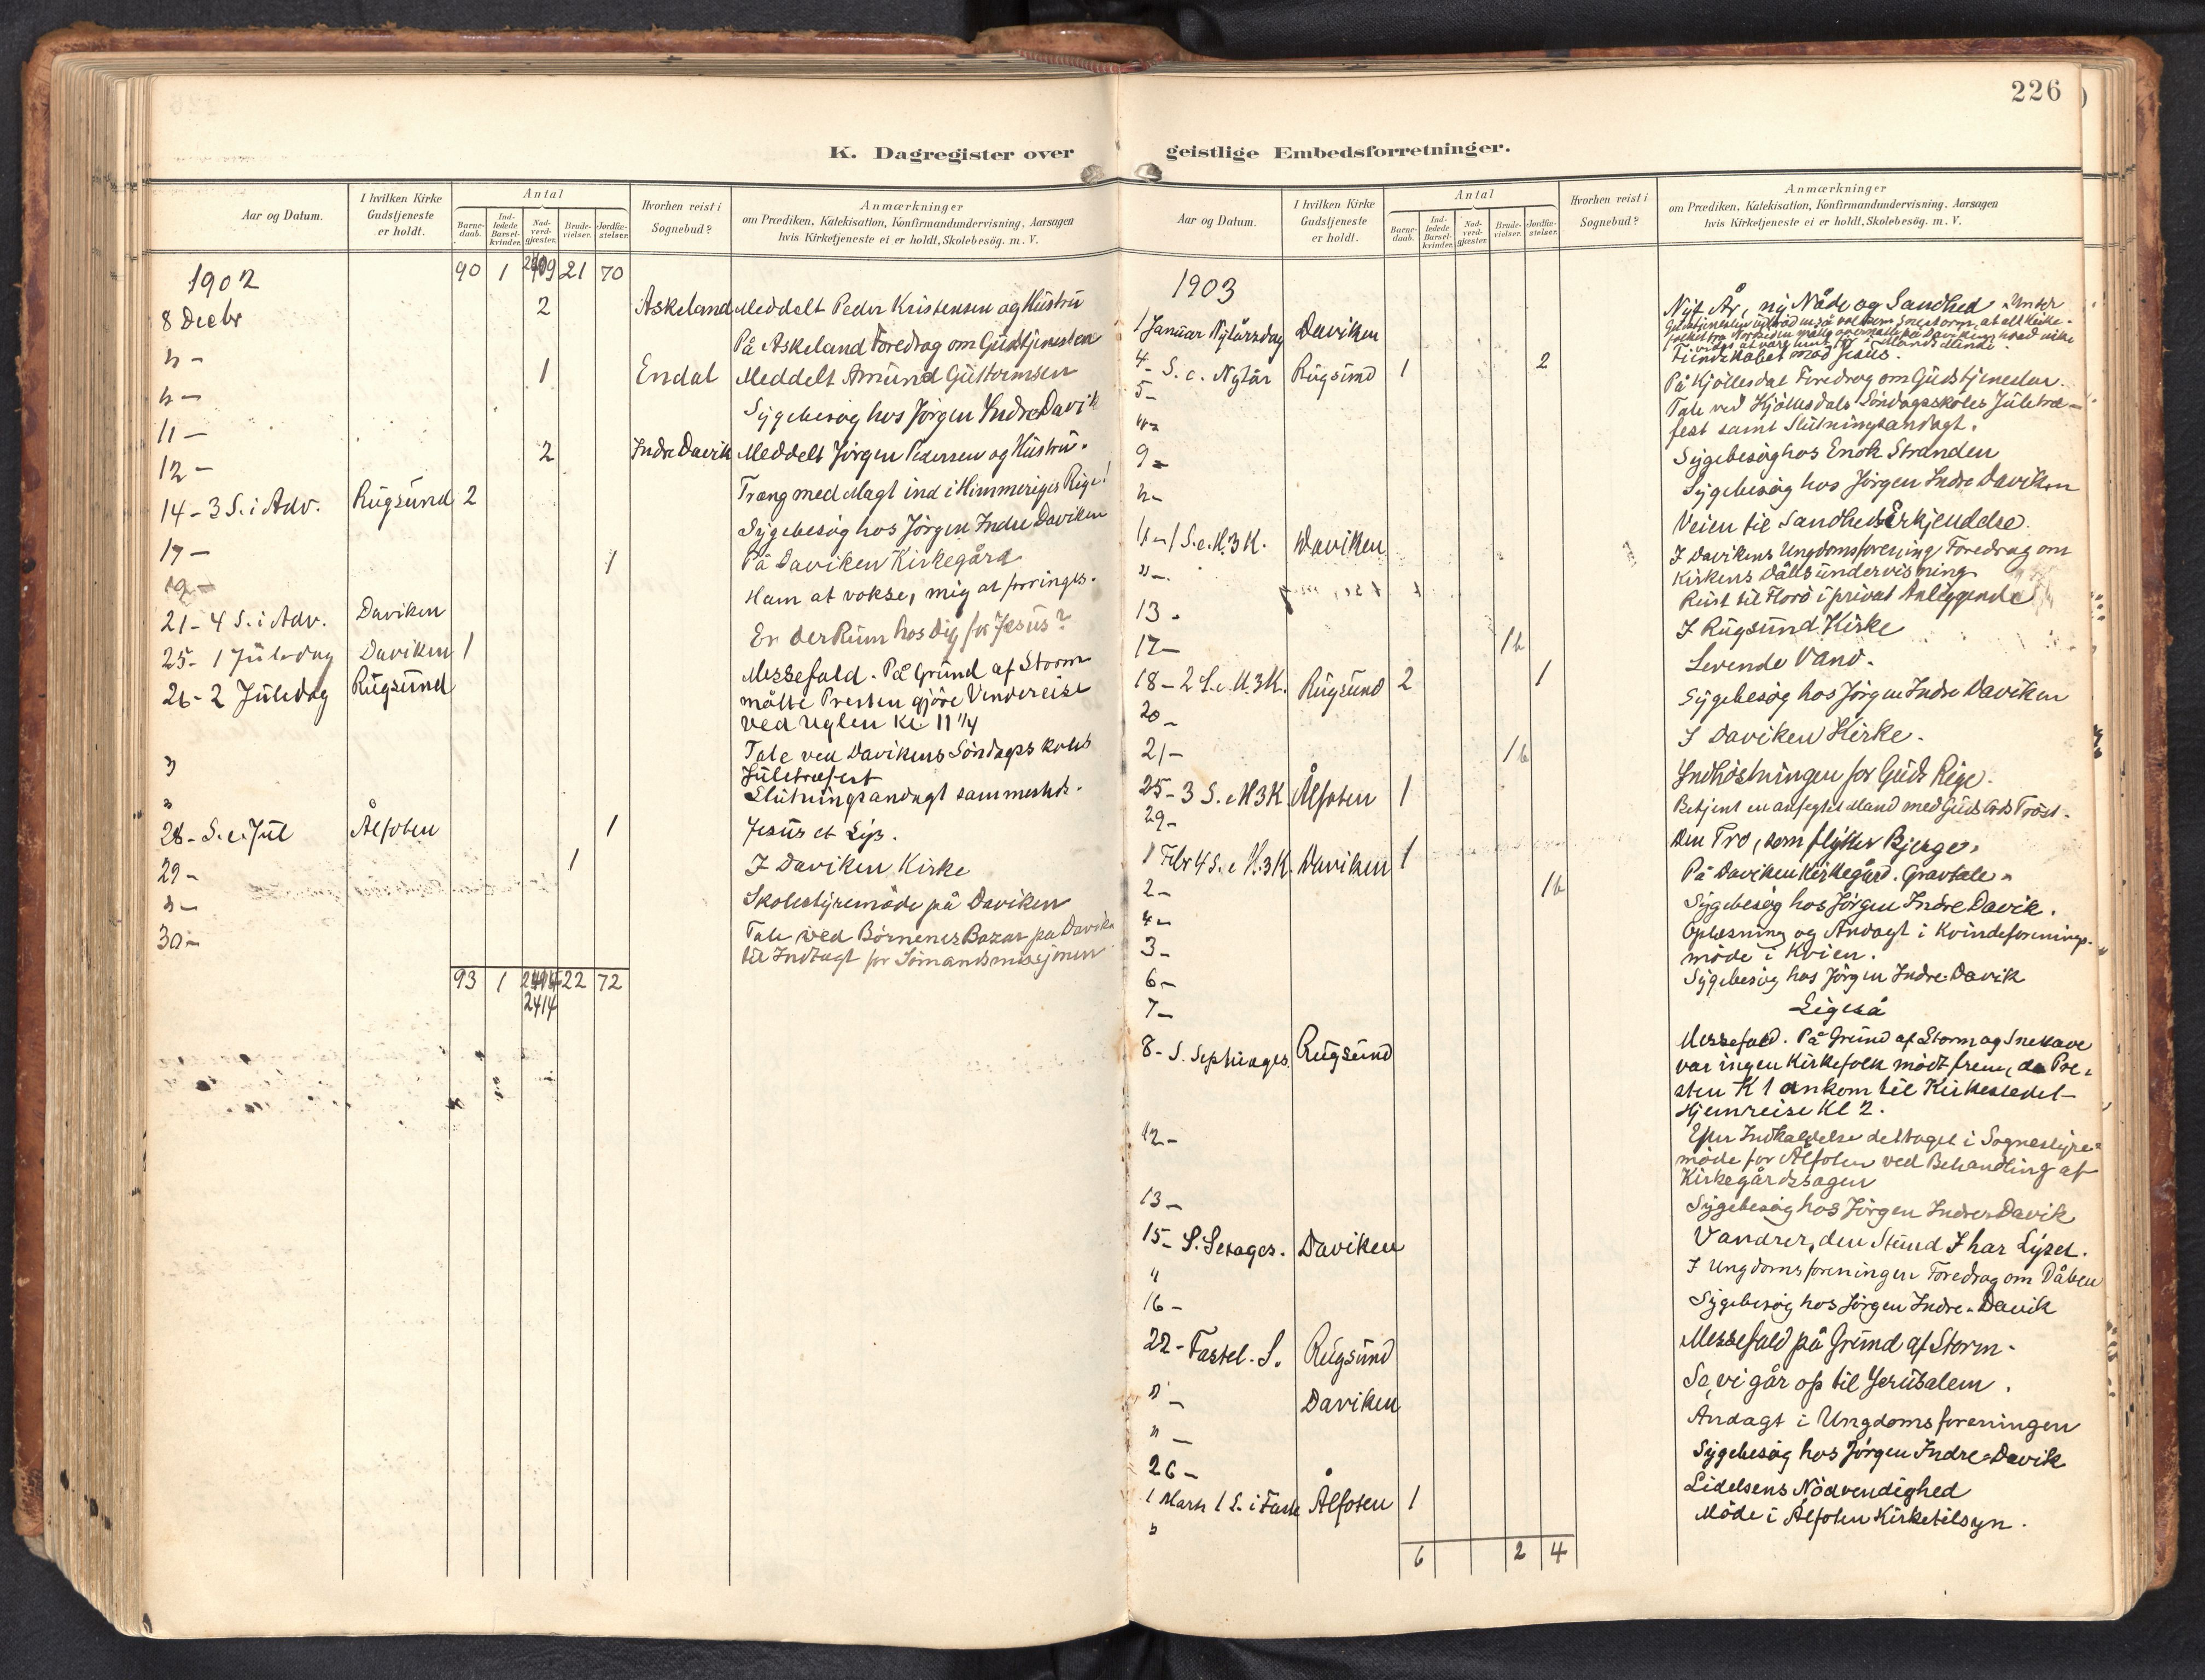 226
K. Dagregister over geistlige Embedsforretninger.
Aar og Datum. I hvilken Kirke Gudstjeneste er holdt. Antal Hvorhen reist i Sognebud? Anmærkninger
om Prædiken, Katekisation, Konfirmandundervisning, Aarsagen
hvis Kirketjeneste ei er holdt, Skolebesøg. m. V.
Barnedaab. Indledede Barselkvinder. Nadverdgjester. Brudevielser. Jordfæstelser.
1902 90 1 21 70
8 Decbr 2 Askeland Meddelt Peder Kristensen og Hustru
" - På Askeland Foredrag om Gudstjenesten
" - 1 Endal Meddelt Amund Guttormsen
11 - Sygebesøg hos Jørgen Indre Davik
12 - 2 Indre Davik Meddelt Jørgen Pedersen og Hustru.
14 - 3 S. i Adv. Rugsund 2 Træng med Magt ind i Himmeriges Rige!
17 - Sygebesøg hos Jørgen Indre Daviken
19 - 1 På Daviken Kirkegård
21 - 4 S. i Adv. Daviken Ham at vokse, mig at forringes.
25 - 1 Juledag Daviken 1 Er der Rum hos Dig for Jesus?
26 - 2 Juledag Rugsund Messefald. På Grund af Storm
måtte Presten gjöre Vendereise
ved Uglen Kl. 11 1/4
" Tale ved Davikens Söndagsskoles
Juletræfest
" Slutningsandagt sammesteds.
28 - S. e. Jul Ålfoten 1 Jesus et Lys.
29 - 1 I Daviken Kirke
" - Skolestyremöde på Daviken
30 - Tale ved Börnenes Bazar på Davik
til Indtægt for Sömandsmissjonen
93 1 22 72
2414
K. Dagregister over geistlige Embedsforretninger.
Aar og Datum. I hvilken Kirke Gudstjeneste er holdt. Antal Hvorhen reist i Sognebud? Anmærkninger
om Prædiken, Katekisation, Konfirmandundervisning, Aarsagen
hvis Kirketjeneste ei er holdt, Skolebesøg. m. V.
Barnedaab. Indledede Barselkvinder. Nadverdgjester. Brudevielser. Jordfæstelser.
1903
1 Januar Nytårsdag Daviken Nyt År, ny Nåde og Sandhed. Under
4 - S. e. Nytår Rugsund 1 2 Fiendskabet mod Jesus.
5 - På Kjöllesdal Foredrag om Gudstjenesten.
" - Tale ved Kjöllesdals Söndagsskoles Juletræ-
fest samt Slutningsandagt.
9 - Sygebesøg hos Enok Stranden
" - Sygebesøg hos Jörgen Indre Daviken
11 - 1 S. e. H. 3 K. Daviken Veien til Sandheds Erkjendelse.
" - I Davikens Ungdomsforening Foredrag om
Kirkens Dåbsundervisning
13 - Reist til Florö i privat Anliggende
17 - 1 b I Rugsund Kirke
18 - 2 S. e. H. 3 K. Rugsund 2 1 Levende Vand.
20 - Sygebesøg hos Jörgen Indre Daviken
21 - 1 b I Daviken Kirke.
25 - 3 S. e H 3 K Ålfoten 1 Indhöstningen for Guds Rige.
29 - Betjent en anfegtet Mand med Guds Ords Tröst.
1 Febr 4 S. e H. 3 K. Daviken 1 Den Tro, som flytter Bjerge.
2 - 1 b På Daviken Kirkegård. Gravtale.
4 - Sygebesøg hos Jörgen Indre Davik.
3 - Oplæsning og Andagt i Kvindeforenings-
möde i Kvien.
6 - Sygebesøg hos Jörgen Indre Davik
7 - Ligeså
8 - S. Septuages. Rugsund Messefald. På Grund af Storm og Snekave
var ingen Kirkefolk mödt frem, da Pre-
sten Kl 1 ankom til Kirkestedet
Hjemreise Kl 2.
12 - Efter Indkaldelse deltaget i Sognestyre-
möde for Ålfoten ved Behandling af
Kirkegårdssagen
13 - Sygebesøg hos Jörgen Indre Davik
15 - S. Sexages. Daviken Vandrer, den Stund I har Lyset.
" I Ungdomsforeningen Foredrag om Dåben
16 - Sygebesøg hos Jörgen Indre Davik
22 - Fastel. S. Rugsund Messefald på Grund af Storm.
" - Daviken Se, vi går op til Jerusalem.
" - Andagt i Ungdomsforeningen
26 - Sygebesøg hos Jörgen Indre Davik
1 Marts 1 S. i Faste Ålfoten 1 Lidelsens Nödvendighed
" Möde i Ålfoten Kirketilsyn.
6 2 4